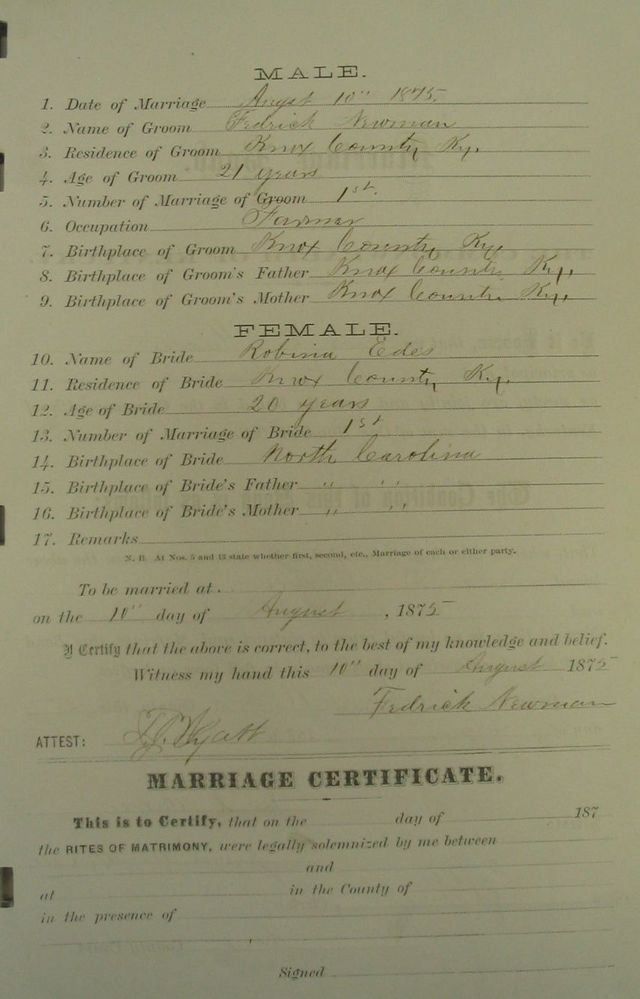 MALE.
1. Date of Marriage Augst 10" 1875.
2. Name of Groom Fedrick Newman
3. Residence of Groom Knox County Ky.
4. Age of Groom 21 years
5. Number of Marriage of Groom 1st.
6. Occupation Farmer
7. Birthplace of Groom Knox County Ky,
8. Birthplace of Groom's Father Knox County Ky,
9. Birthplace of Groom's Mother Knox County Ky,
FEMALE.
10. Name of Bride Robina Edes
11. Residence of Bride Knox County Ky.
12. Age of Bride 20 years
13. Number of Marriage of Bride 1st
14. Birthplace of Bride North Carolina
15. Birthplace of Bride's Father " "
16. Birthplace of Bride's Mother " "
17. Remarks
N. B. At Nos. 5 and 13 state whether first, second, etc., Marriage of each or either party.
To be married at
on the 10" day of August , 1875
I Certify that the above is correct, to the best of my knowledge and belief.
Witness my hand this 10" day of August 1875
Fedrick Newman
ATTEST: Wyatt
MARRIAGE CERTIFICATE.
This is to Certify, that on the day of 187
the RITES OF MATRIMONY, were legally solemnized by me between
and
at in the County of
in the presence of
Signed